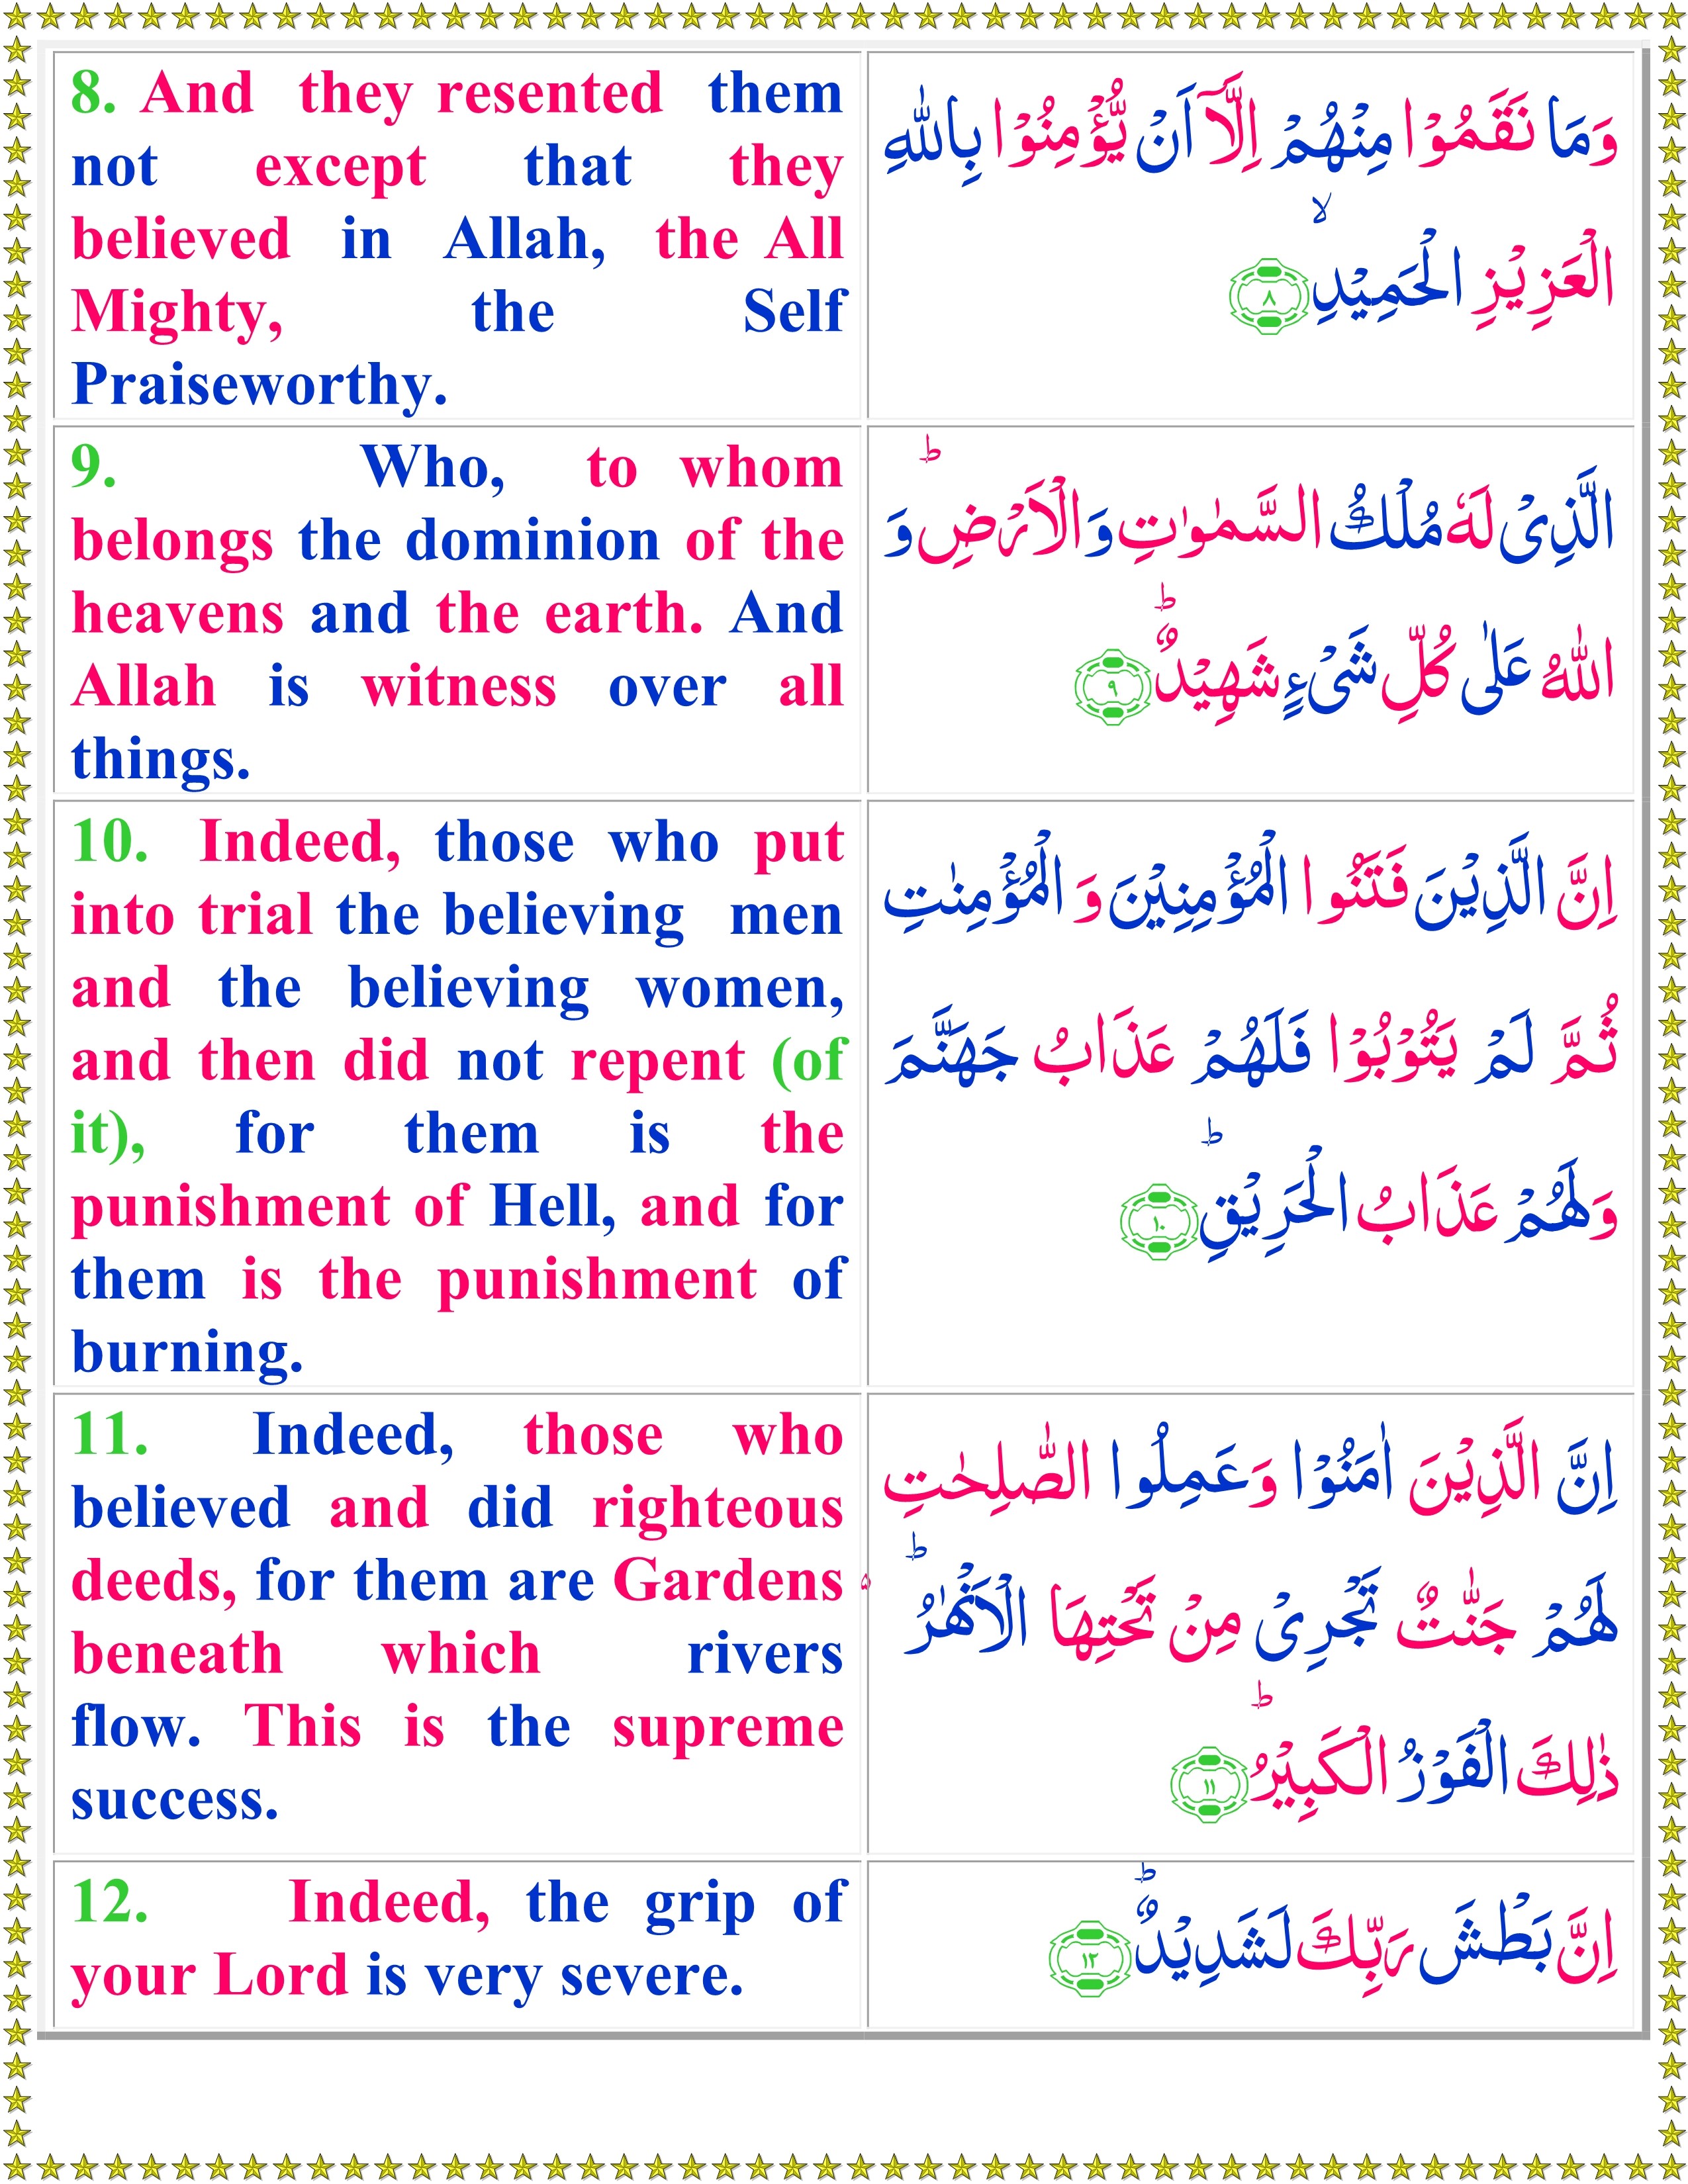 8. And they resented them
not except that they
believed in Allah, the All
Mighty, the Self
Praiseworthy.
وَمَا نَقَمُوْا مِنْهُمْ اِلَّاۤ اَنْ يُّؤْمِنُوْا بِاللّٰهِ
الْعَزِيْزِ الْحَمِيْدِۙ ٨
9. Who, to whom
belongs the dominion of the
heavens and the earth. And
Allah is witness over all
things.
الَّذِىْ لَهٗ مُلْكُ السَّمٰوٰتِ وَالْاَرْضِؕ وَ
اللّٰهُ عَلٰى كُلِّ شَىْءٍ شَهِيْدٌؕ ٩
10. Indeed, those who put
into trial the believing men
and the believing women,
and then did not repent (of
it), for them is the
punishment of Hell, and for
them is the punishment of
burning.
اِنَّ الَّذِيْنَ فَتَنُوا الْمُؤْمِنِيْنَ وَ الْمُؤْمِنٰتِ
ثُمَّ لَمْ يَتُوْبُوْا فَلَهُمْ عَذَابُ جَهَنَّمَ
وَلَهُمْ عَذَابُ الْحَرِيْقِؕ ١٠
11. Indeed, those who
believed and did righteous
deeds, for them are Gardens
beneath which rivers
flow. This is the supreme
success.
اِنَّ الَّذِيْنَ اٰمَنُوْا وَعَمِلُوا الصّٰلِحٰتِ
لَهُمْ جَنّٰتٌ تَجْرِىْ مِنْ تَحْتِهَا الْاَنْهٰرُؕ
ذٰلِكَ الْفَوْزُ الْكَبِيْرُؕ ١١
12. Indeed, the grip of
your Lord is very severe.
اِنَّ بَطْشَ رَبِّكَ لَشَدِيْدٌؕ ١٢